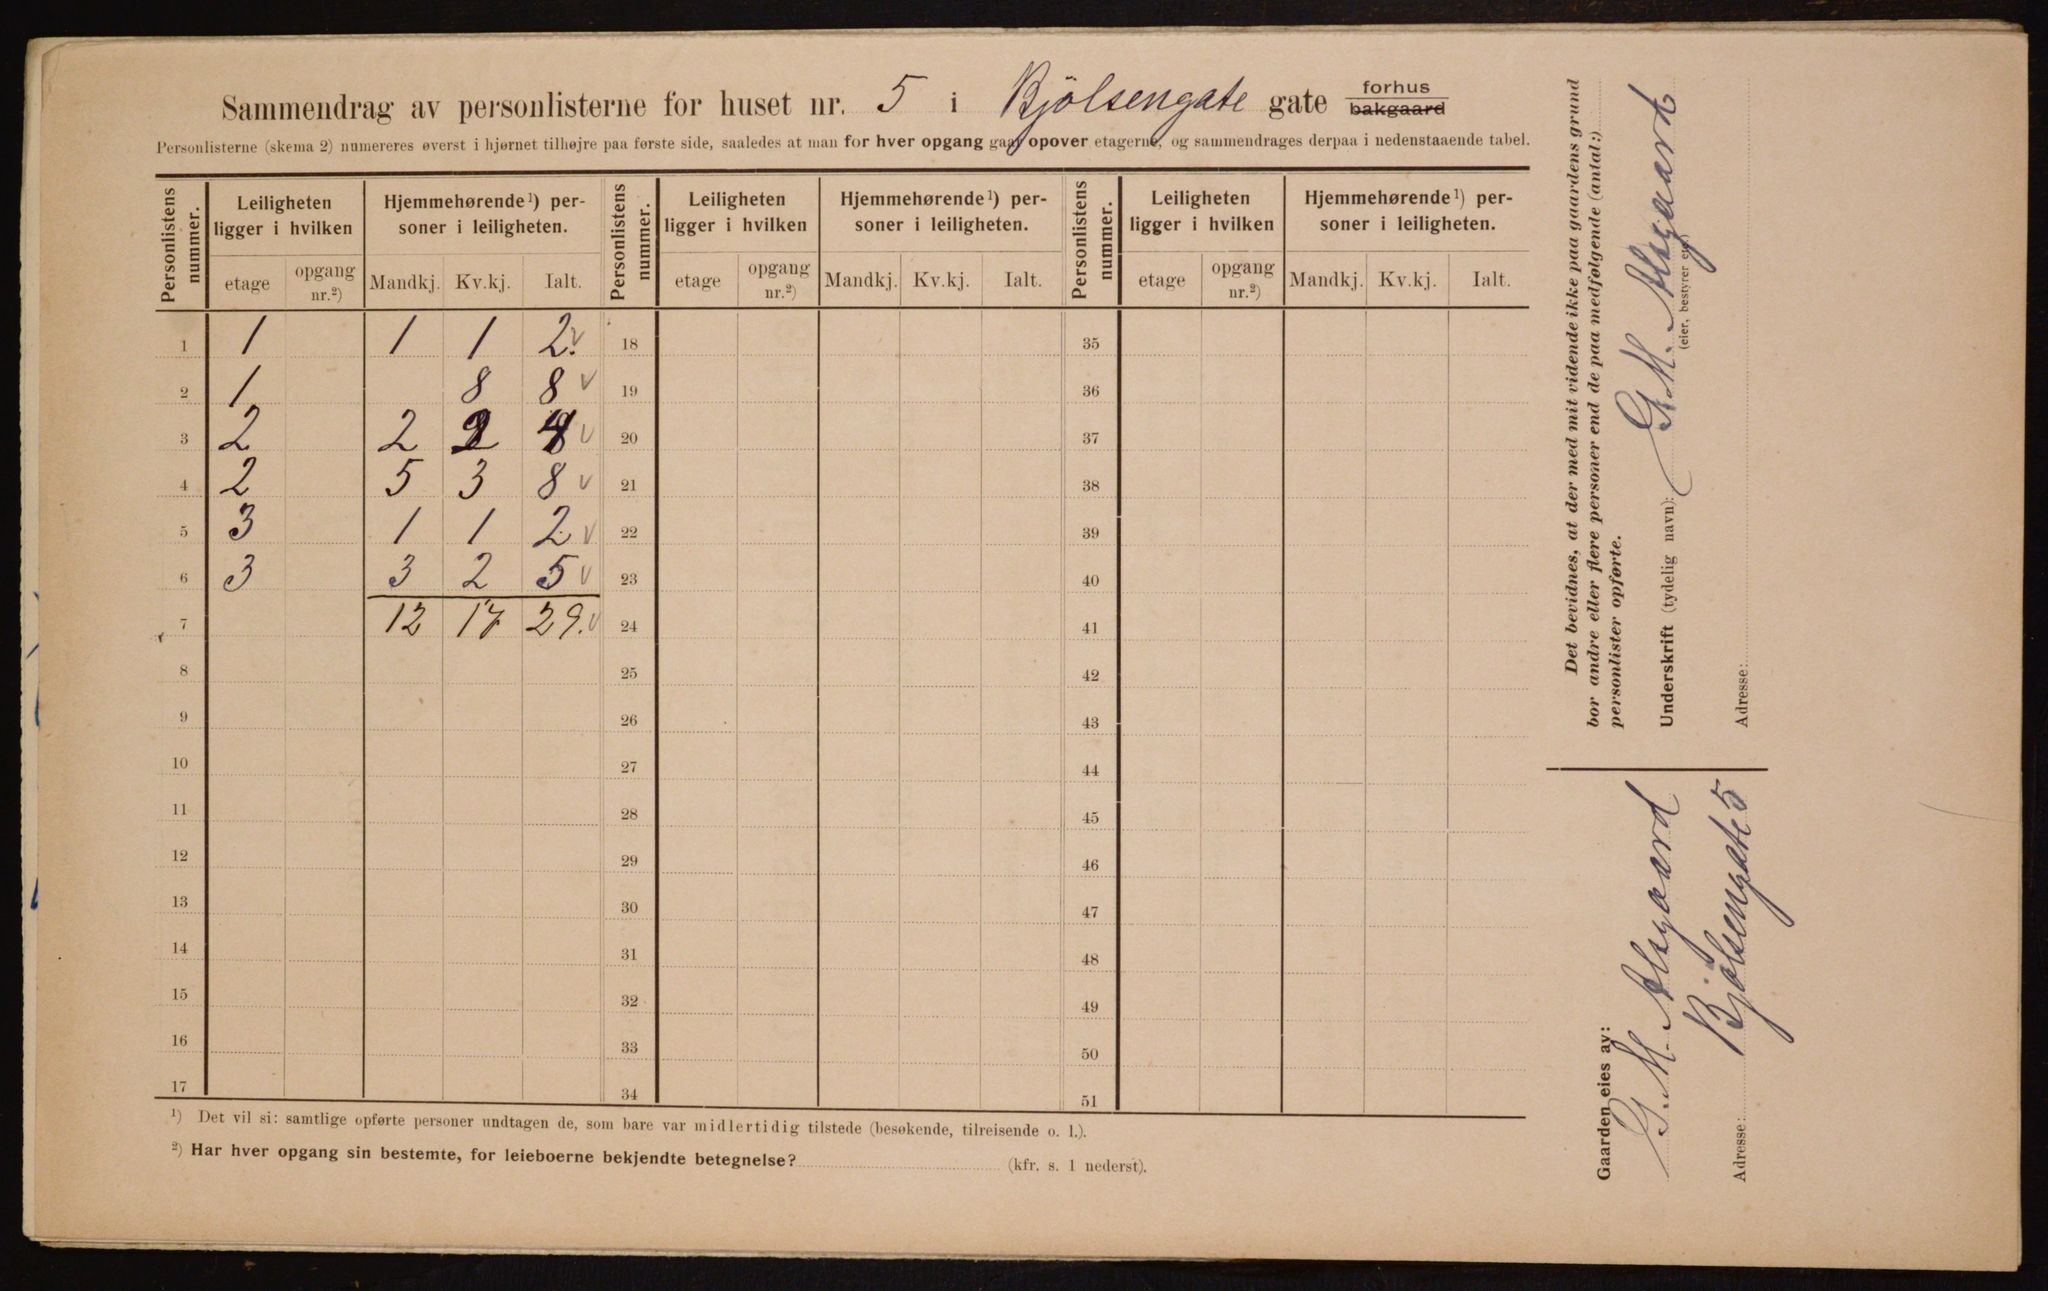 Sammendrag av personlisterne for huset nr. 5 i Bjölsengate gate forhus
bakgaard
Personlisterne (skema 2) numereres øverst i hjørnet tilhøjre paa første side, saaledes at man for hver opgang gaar opover etagerne, og sammendrages derpaa i nedenstaaende tabel.
Personlistens nummer. Leiligheten ligger i hvilken Hjemmehørende¹) personer i leiligheten. Personlistens nummer. Leiligheten ligger i hvilken Hjemmehørende¹) personer i leiligheten. Personlistens nummer. Leiligheten ligger i hvilken Hjemmehørende¹) personer i leiligheten.
etage opgang nr.²) Mandkj. Kv.kj. Ialt. etage opgang nr.²) Mandkj. Kv.kj. Ialt. etage opgang nr.²) Mandkj. Kv.kj. Ialt.
1 1 1 1 2. 18 35
2 1 8 8 19 36
3 2 2 2 4 20 37
4 2 5 3 8 21 38
5 3 1 1 2 22 39
6 3 3 2 5 23 40
7 12 17 29. 24 41
8 25 42
9 26 43
10 27 44
11 28 45
12 29 46
13 30 47
14 31 48
15 32 49
16 33 50
17 34 51
¹) Det vil si: samtlige opførte personer undtagen de, som bare var midlertidig tilstede (besøkende, tilreisende o. l.).
²) Har hver opgang sin bestemte, for leieboerne bekjendte betegnelse? (kfr. s. 1 nederst).
Det bevidnes, at der med mit vidende ikke paa gaardens grund
bor andre eller flere personer end de paa medfølgende (antal:)
personlister opførte.
Underskrift (tydelig navn): G. M. Alsgaard
(eier, bestyrer etc.)
Adresse:
Gaarden eies av:
G. M. Alsgaard
Adresse: Bjölsengate 5